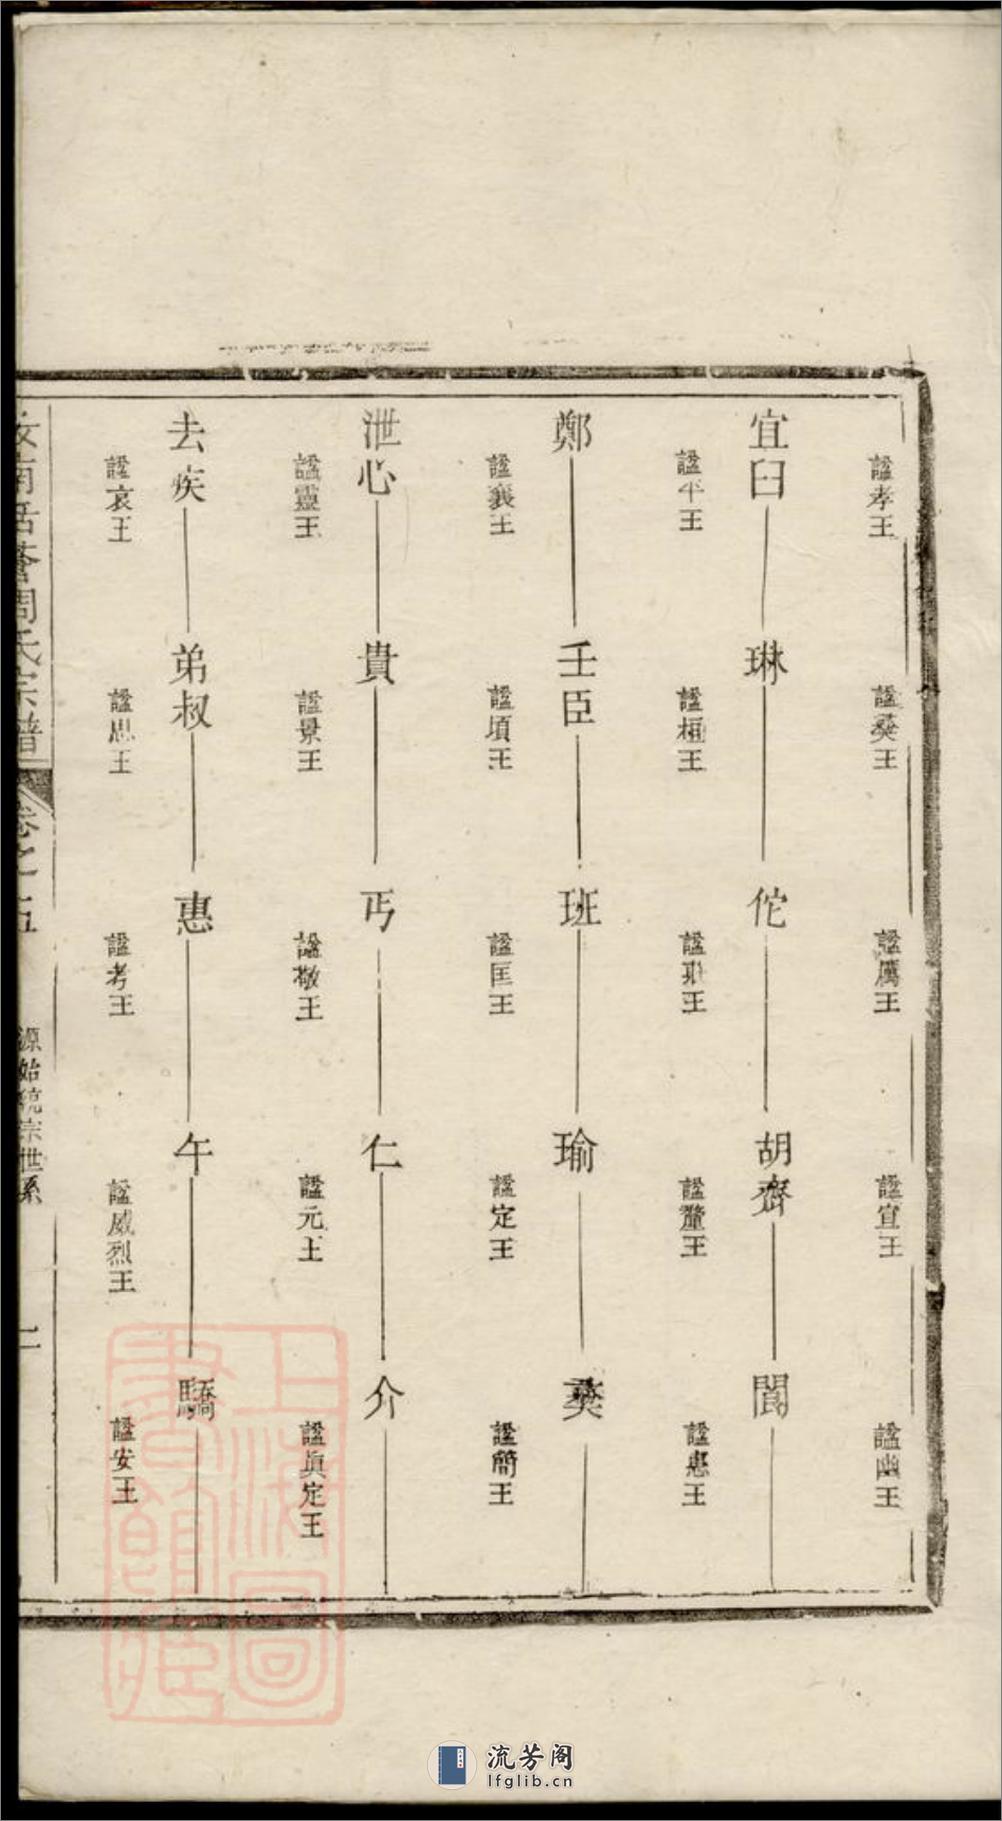 諡孝王
諡燹王
諡厲王
諡宣王
諡幽王
宜臼
琳
佗
胡齊
閬
諡平王
諡桓王
諡釐王
諡惠王
鄭
壬臣
班
瑜
諡襄王
諡頃王
諡匡王
諡定王
諡簡王
泄心
貴
丐
仁
介
諡靈王
諡景王
諡敬王
諡元王
諡眞定王
去疾
弟叔
惠
午
驕
諡哀王
諡思王
諡考王
諡威烈王
諡安王
汝南括蒼周氏宗譜
卷之五
源始統宗世系
上海圖書館藏
流芳阁
lfglib.cn